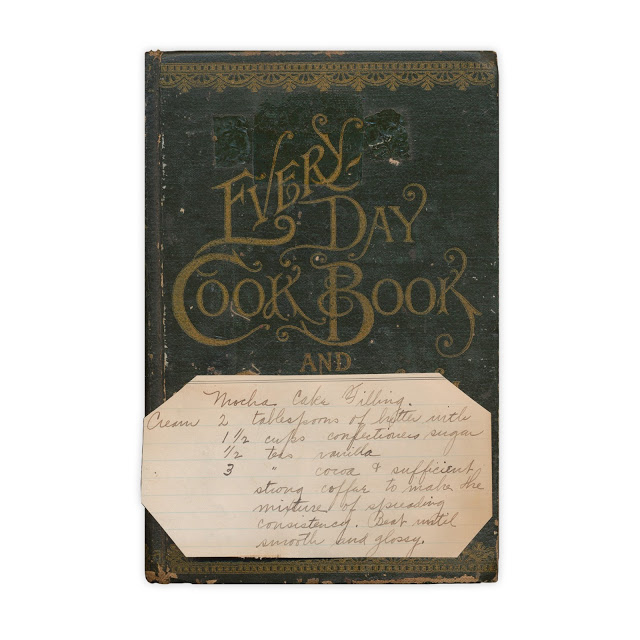 EVERY-
DAY
COOK BOOK
AND
Mocha Cake Filling.
Cream 2 tablespoons of butter with
1 1/2 cups confectioners sugar
1/2 teas vanilla
3 " cocoa & sufficient
strong coffee to make the
mixture of spreading
consistency. Beat until
smooth and glossy.